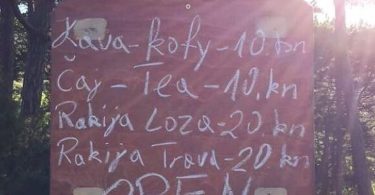 Kava-kofy-10 kn
Čaj-Tea-10.kn
Rakija Loza-20.kn
Rakija Trava-20 kn
OPEN